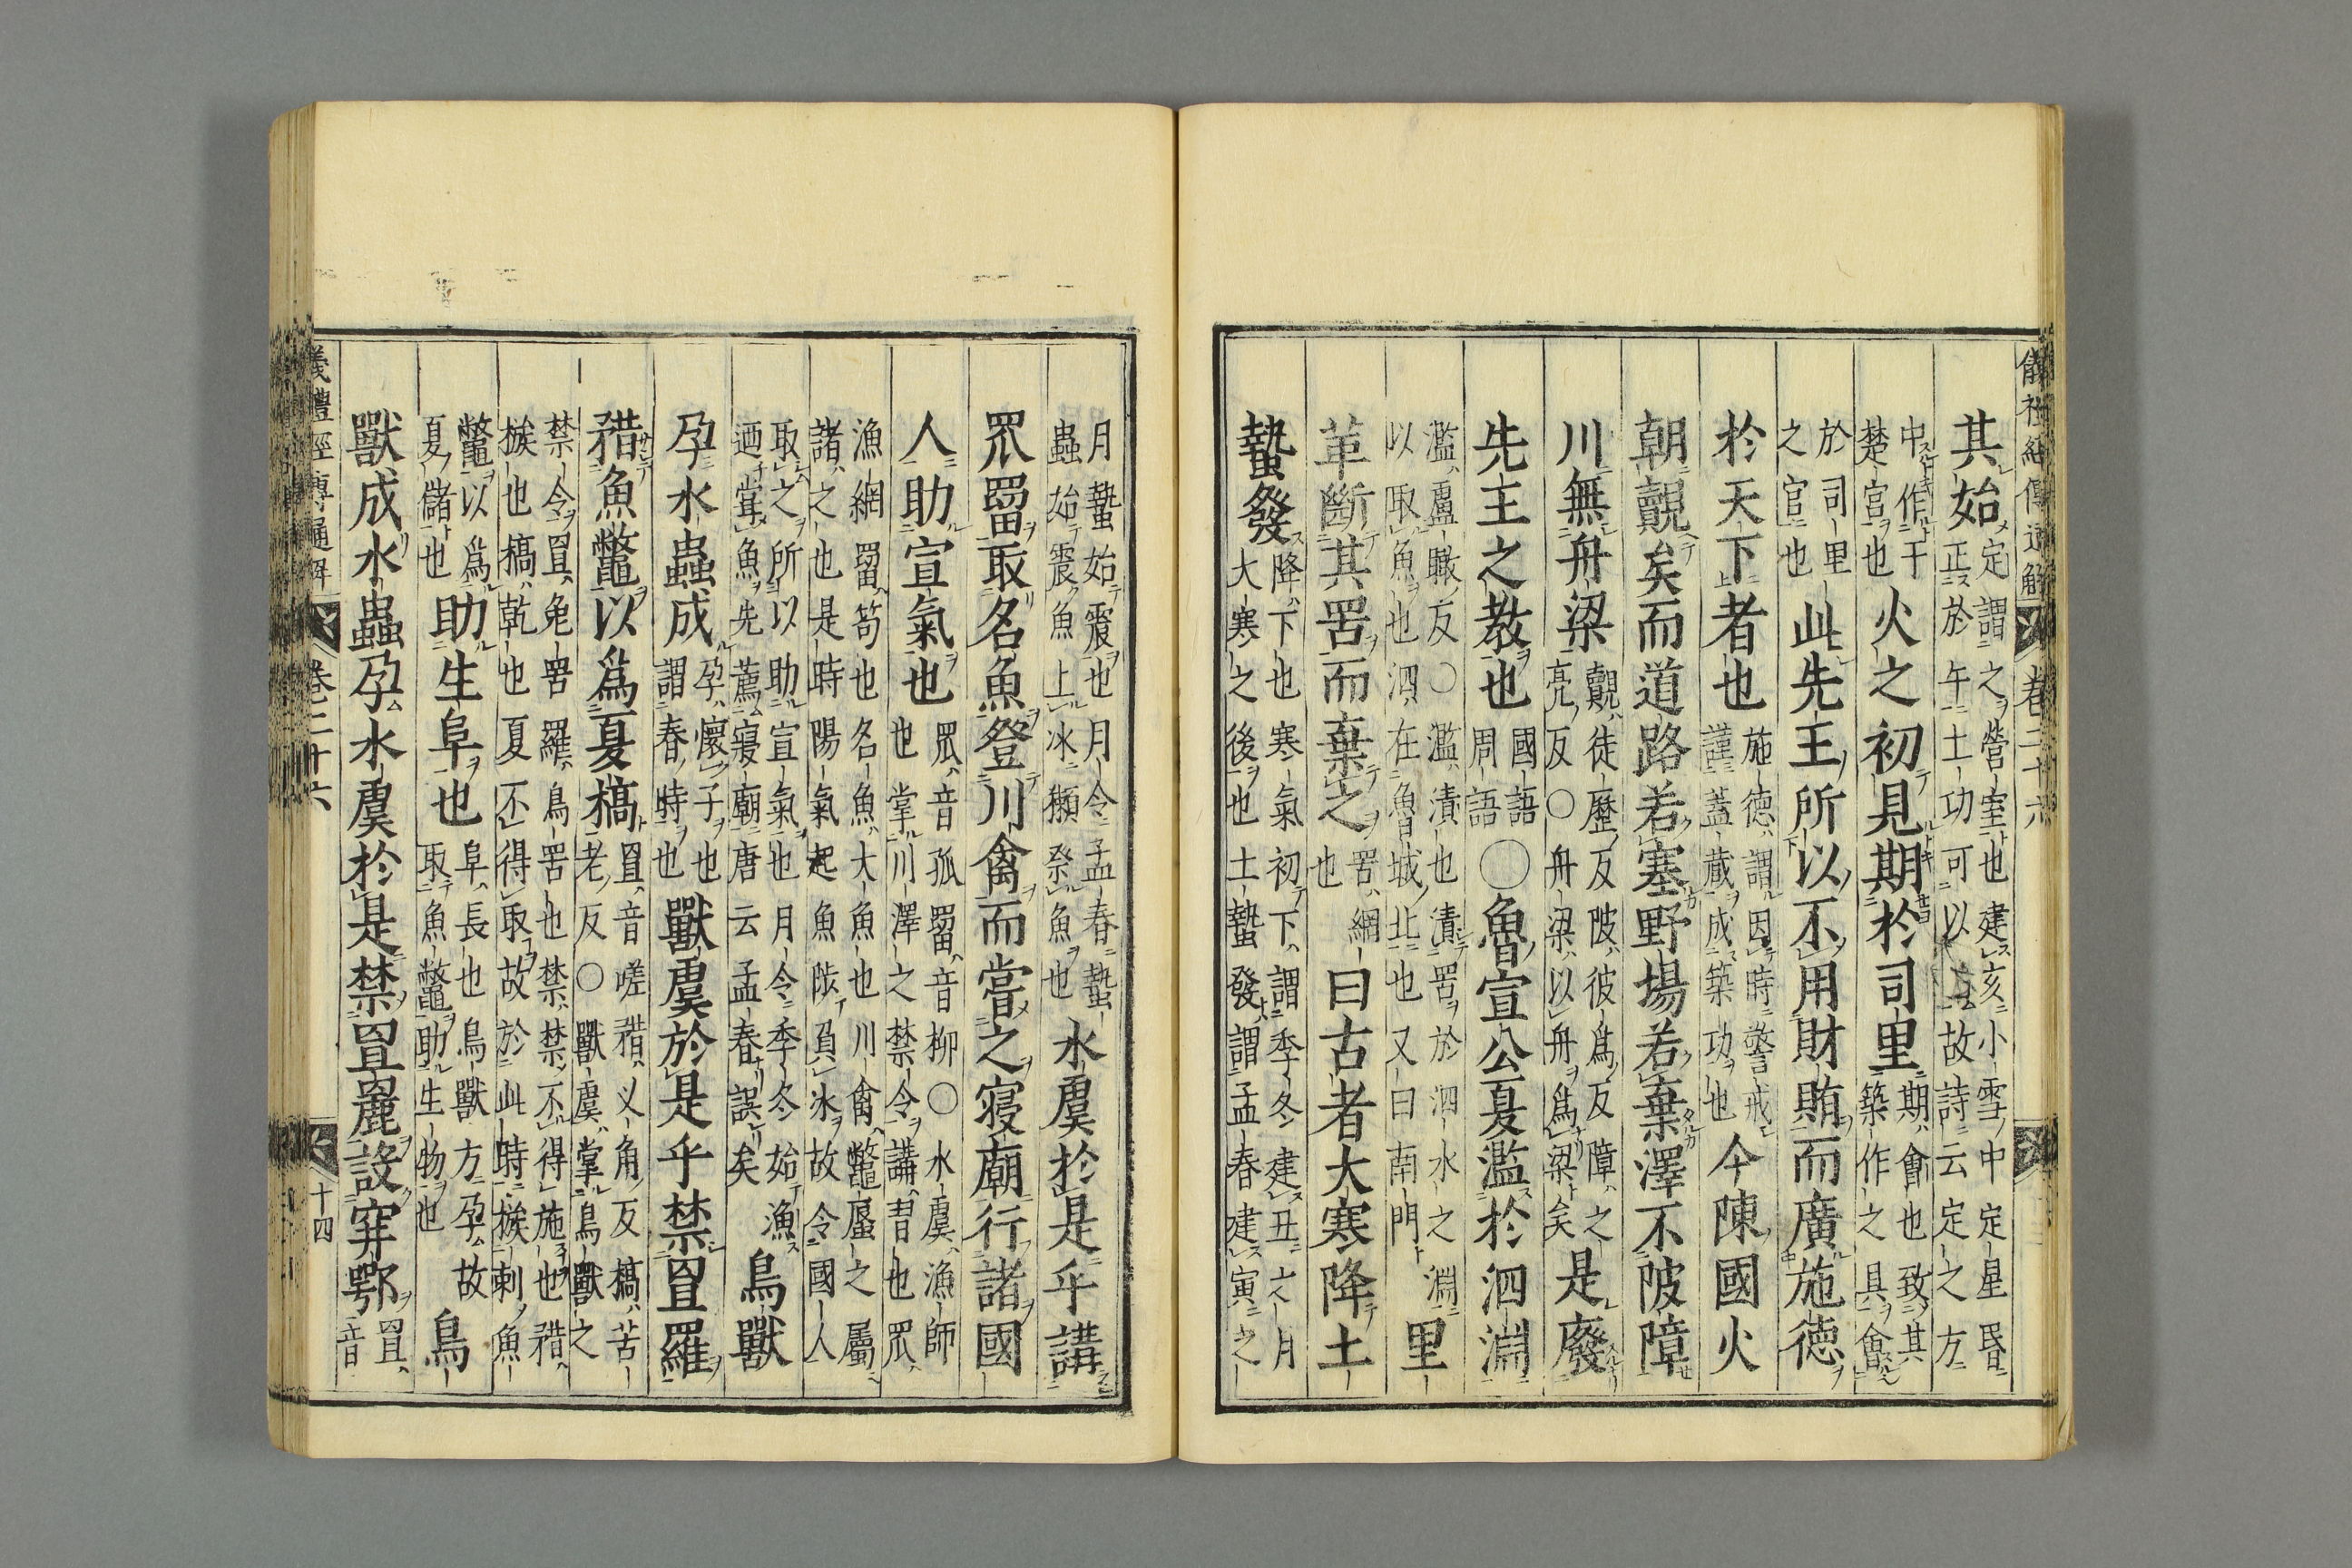 儀禮經傳通解 卷二十六
其始定謂之營室也建亥小雪中定星昏
正於午土功可以故詩云定之方
中作于
楚宮也火之初見期於司里期會也致其
築作之具會
於司里
之官也此先王所以不用財賄而廣施德
於天下者也施德謂因時警戒
謹蓋藏成築功也今陳國火
朝覿矣而道路若塞野場若棄澤不陂障
川無舟梁覿徒歷反陂彼爲反障之
亮反○舟梁以舟爲梁矣是廢
先王之教也國語
周語○魯宣公夏濫於泗淵
濫盧瞰反○濫漬也漬罟於泗水之淵
以取魚也泗在魯城北也又曰南門里
革斷其罟而棄之罟網
也曰古者大寒降土
蟄發降下也寒氣初下謂季冬建丑之月
大寒之後也土蟄發謂孟春建寅之
月蟄始震也月令孟春蟄
蟲始震魚上冰獺祭魚也水虞於是乎講
罛罶取名魚登川禽而嘗之寝廟行諸國
人助宣氣也罛音孤罶音柳○水虞漁師
也掌川澤之禁令講習也罛
漁網罶笱也名魚大魚也川禽鼈蜃之屬
諸之也是時陽氣起魚陟負冰故令國人
取之所以助宣氣也月令季冬始漁
迺嘗魚先薦寝廟唐云孟春誤矣鳥獸
孕水蟲成孕懷子也
謂春時也獸虞於是乎禁罝羅
矠魚鼈以爲夏槁罝音嗟矠乂角反槁苦
老反○獸虞掌鳥獸之
禁令罝兔罟羅鳥罟也禁禁不得施也矠
㨖也槁乾也夏不得取故於此時㨖刺魚
鼈以爲
夏儲也助生阜也阜長也鳥獸方孕故
取魚鼈助生物也鳥
獸成水蟲孕水虞於是禁罝䍡設穽鄂罝
音
儀禮經傳通解 卷二十六 十四